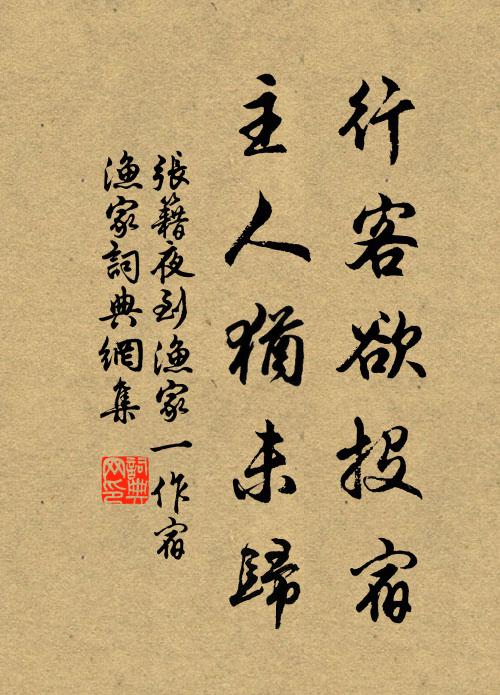 行客欲投宿
主人猶未歸
張籍夜到漁家一作宿
漁家詞典網集
詞典
网印